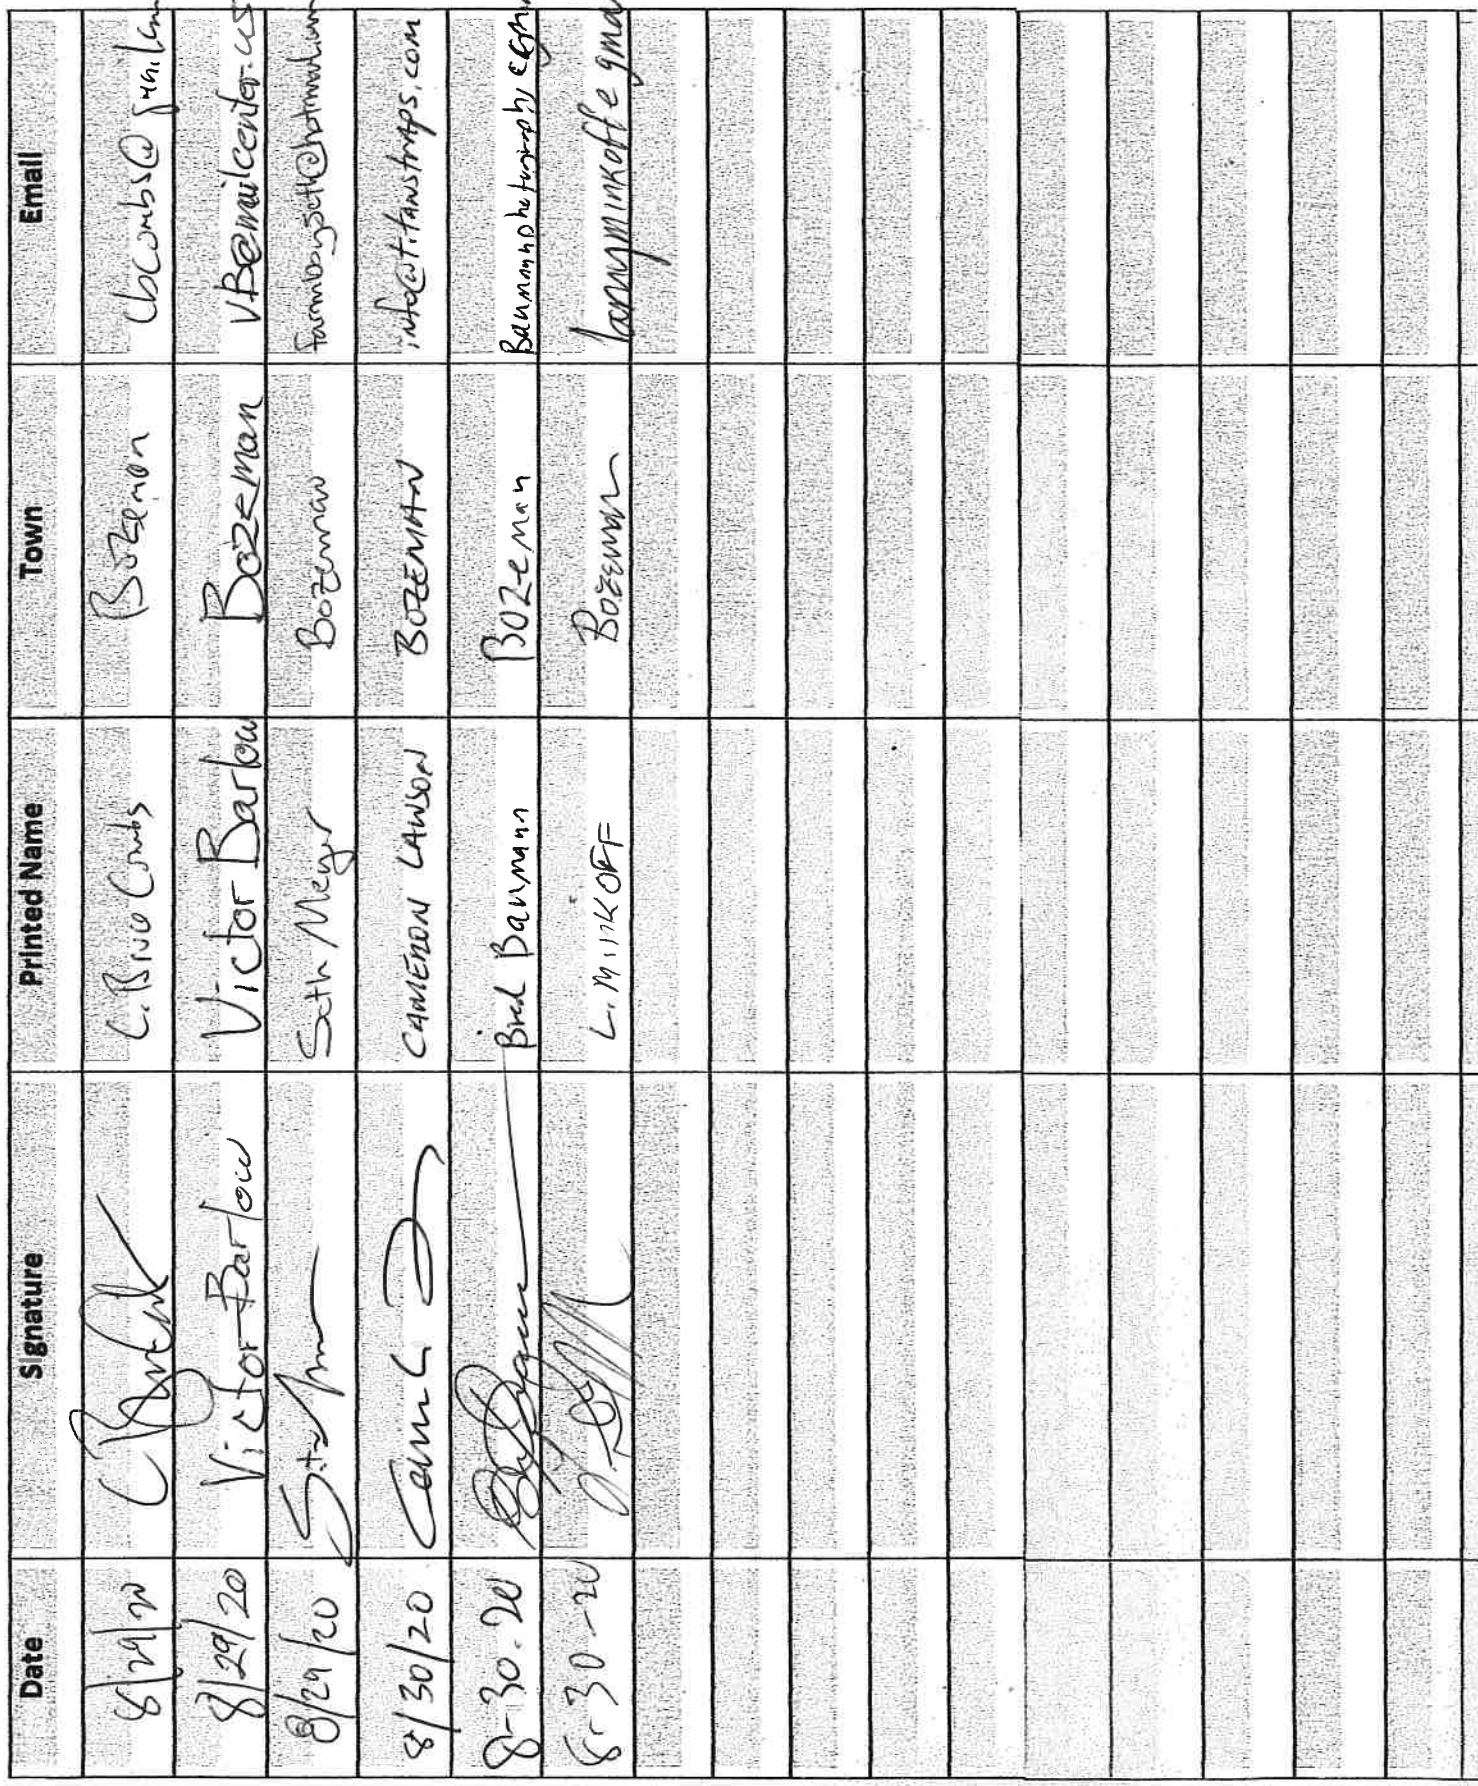 Date Signature Printed Name Town Email
8/29/20 C. Brice Combs Bozeman cbcombs@gmail.com
8/29/20 Victor Barlow Victor Barlow Bozeman VB@mailcenter.us
8/29/20 Seth Meyer Bozeman farmboyseth@hotmail.com
8/30/20 CAMERON LAWSON BOZEMAN info@titanstraps.com
8-30-20 Brad Baumann Bozeman Baumannphotography@gm
8-30-20 L. MINKOFF Bozeman lannyminkoff@gma